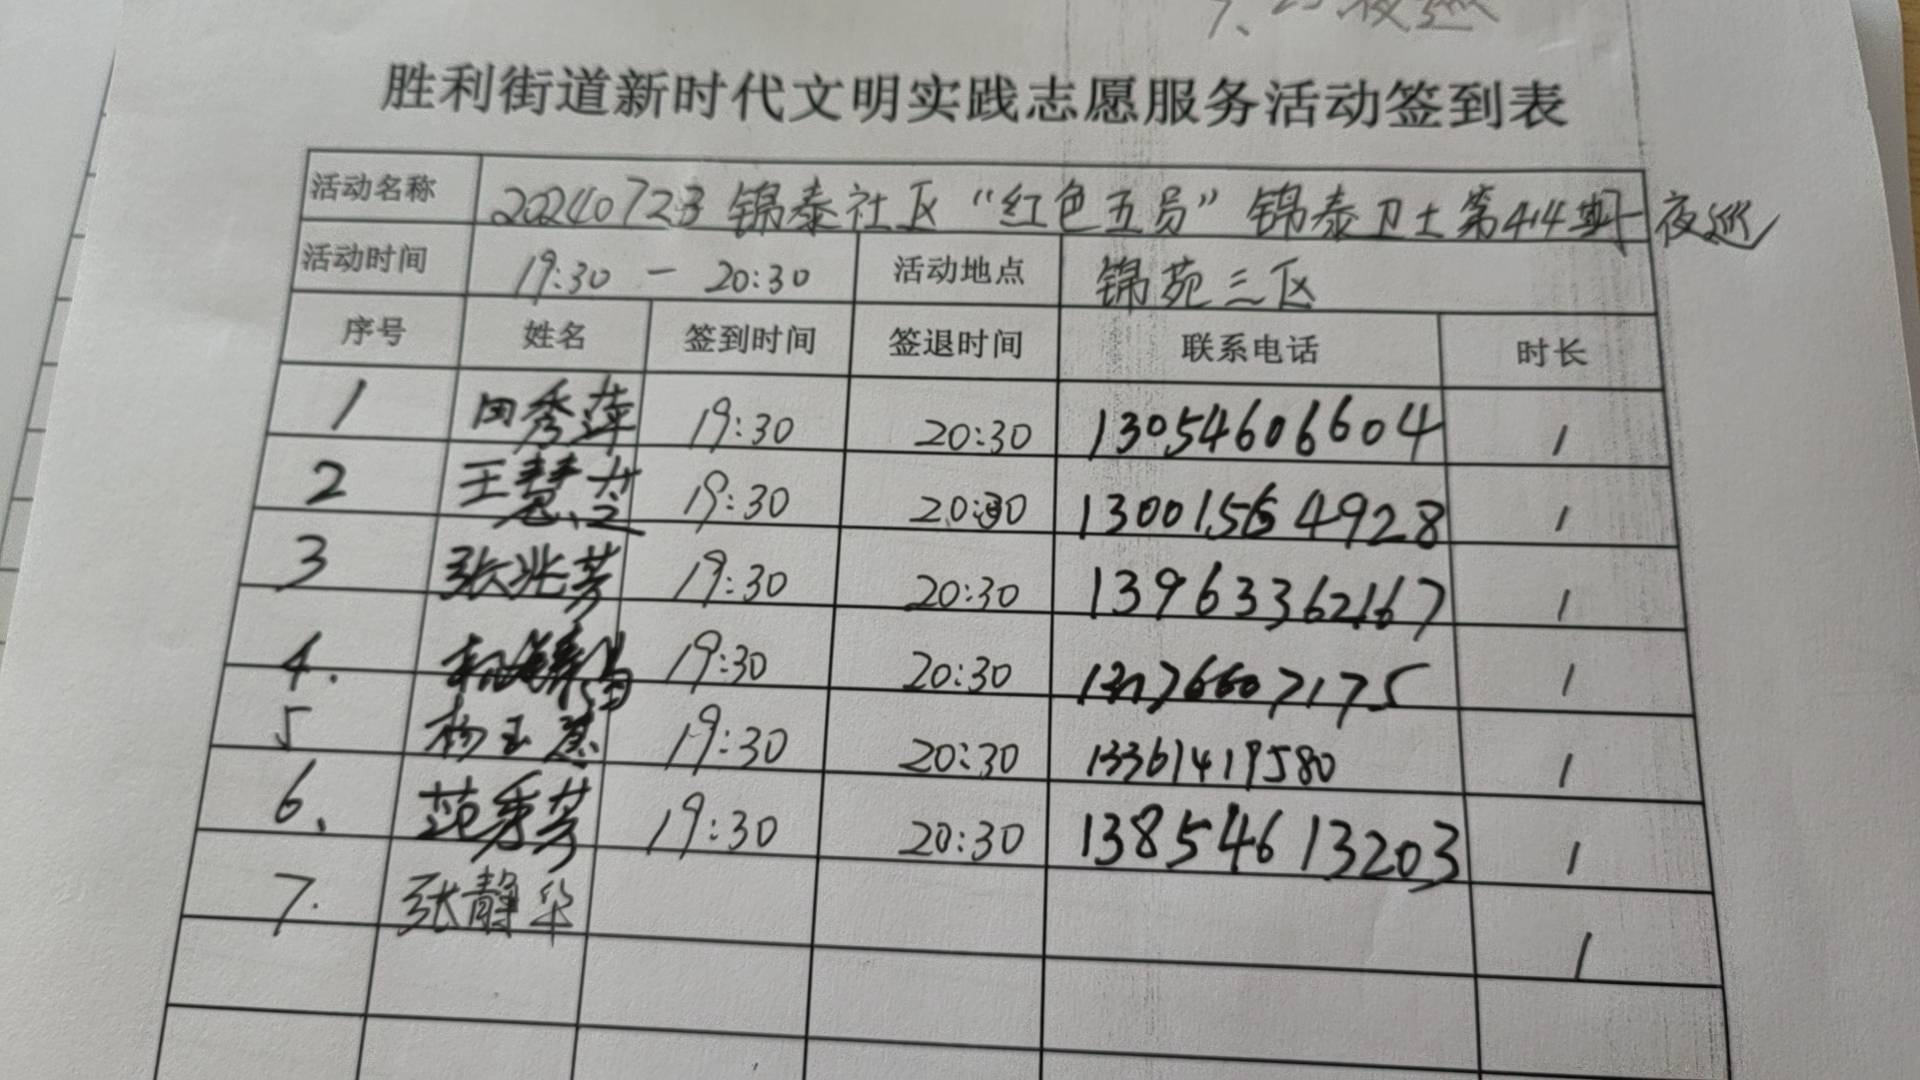 7、23夜巡
胜利街道新时代文明实践志愿服务活动签到表
活动名称 20240723锦泰社区“红色五员”锦泰卫士第414期-夜巡
活动时间 19:30 - 20:30 活动地点 锦苑三区
序号 姓名 签到时间 签退时间 联系电话 时长
1 田秀萍 19:30 20:30 13054606604 1
2 王慧芝 19:30 20:30 1
3 张兆芳 19:30 20:30 13963362167 1
4. 19:30 20:30 1
5 杨玉 19:30 20:30 13361419580 1
6、 范秀芳 19:30 20:30 13854613203 1
7. 张静华 1